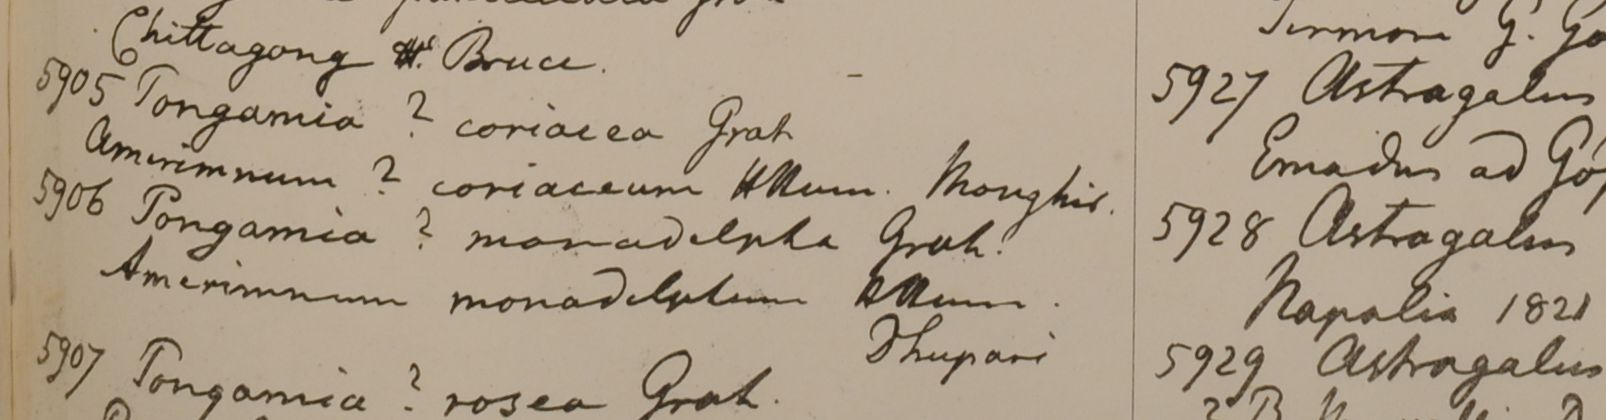 Chittagong H. Bruce.
5905 Pongamia ? coriacea Grah
Amerimnum ? coriaceum HHam. Monghir.
5906 Pongamia ? monadelpha Grah.
Amerimnum monadelphum HHam.
Dhupari
5907 Pongamia ? rosea Grah.
Sirmore G. Go
5927 Astragalus
Emadus ad Go
5928 Astragalus
Napalia 1821
5929 Astragalus